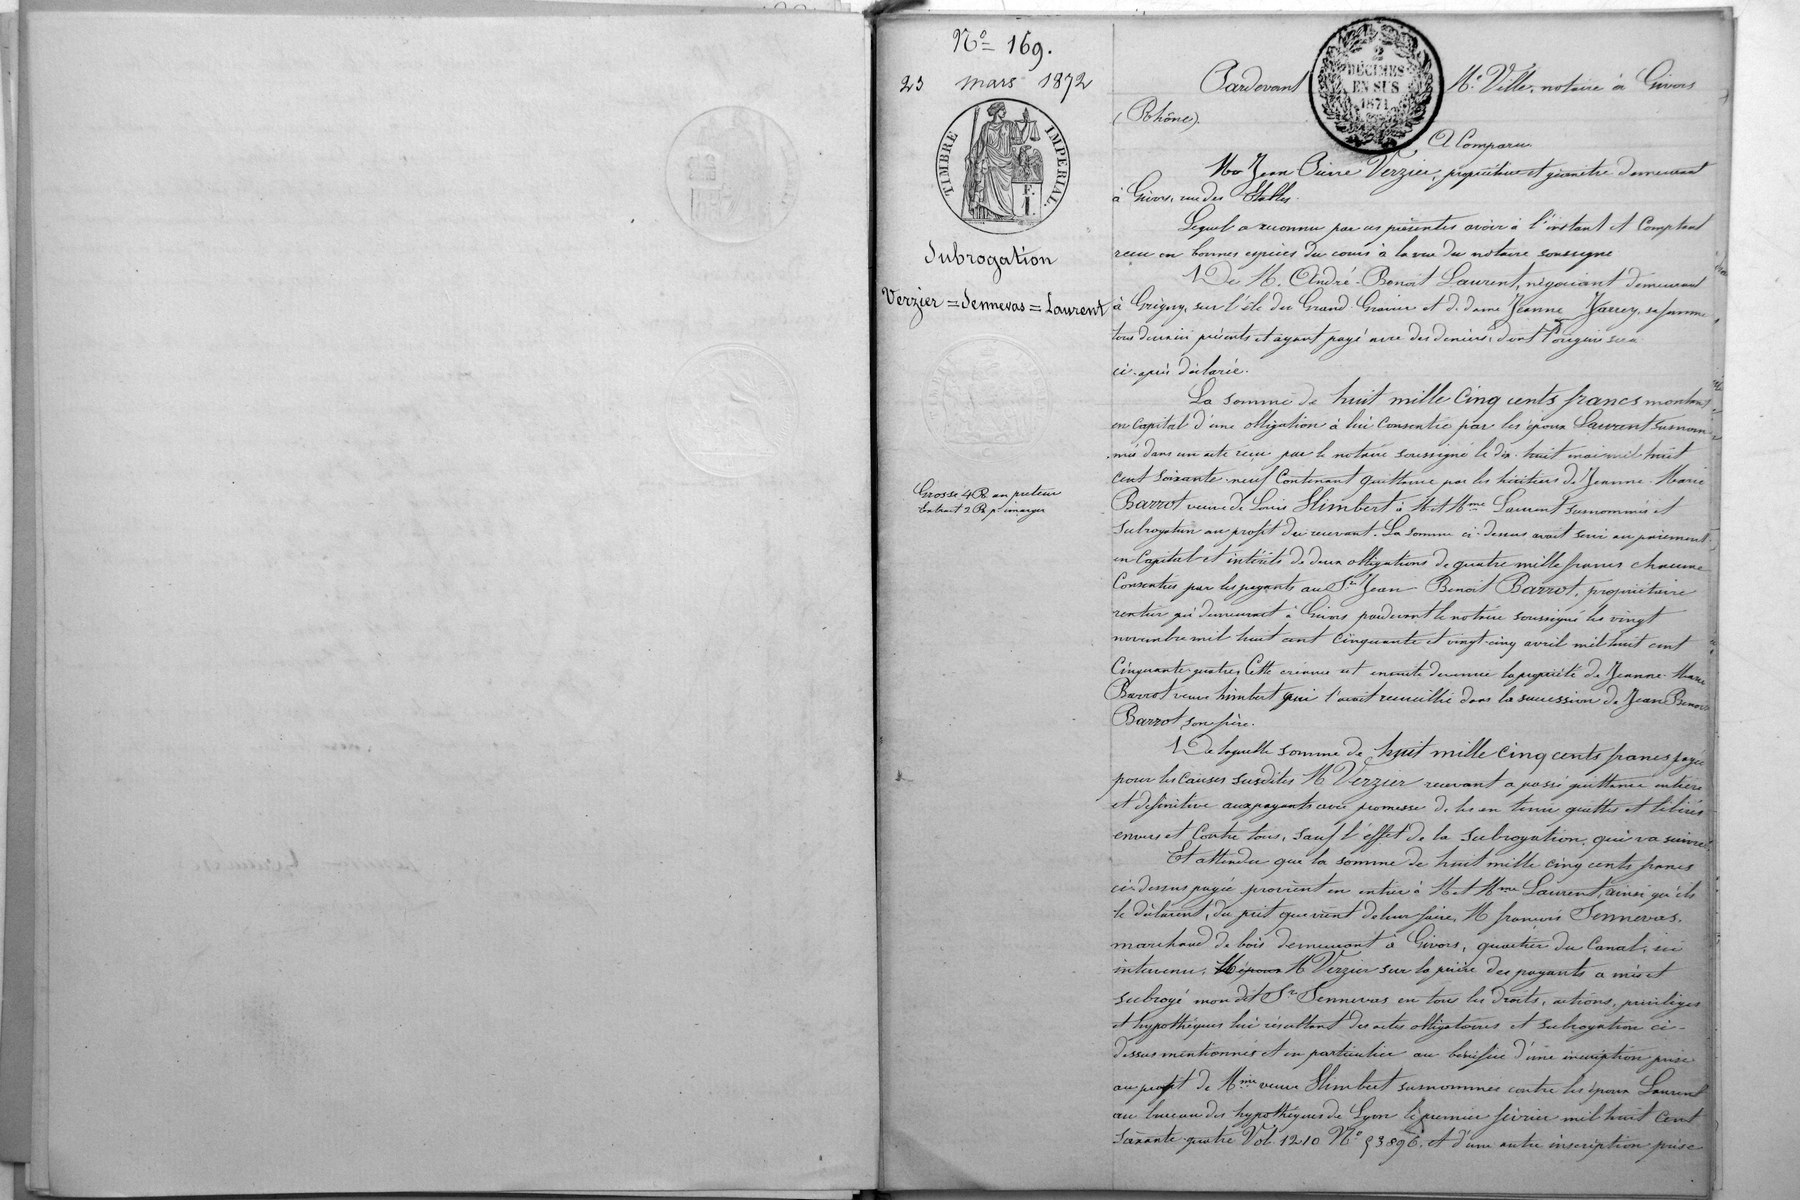 N° = 169.
23 mars 1872
TIMBRE IMPERIAL
F.
I.
Subrogation
Verzier = Sennevas = Laurent
Grosse 4 R au prêteur
Extrait 2 R p. émarger
2
DÉCIMES
EN SUS
1871
Pardevant Me Ville, notaire à Givors
(Rhône).
A Comparu
Mr Jean Pierre Verzier, propriétaire et géomètre demeurant
à Givors, rue des
Lequel a reconnu par ces présentes avoir à l'instant et Comptant
recu en bonnes espèces du cours à la vue du notaire soussigné
De M. André-Benoit Laurent, négociant demeurant
à Grigny, sur l'île du Grand Gravier et de dame Jeanne Jarrey, sa femme
tous deux ici présents et ayant payé avec des deniers dont l'origine sera
ci-après déclarée.
La somme de huit mille cinq cents francs montant
en Capital d'une obligation à lui Consentie par les époux Laurent surnom-
més dans un acte reçu par le notaire soussigné le dix-huit mai mil huit
cent soixante-neuf Contenant quittance par les héritiers de Jeanne-Marie
Barrot veuve de Louis Himbert à M et Mme Laurent surnommés et
subrogation au profit du recevant. La somme ci-dessus avait servi au paiement
en Capital et intérêts de deux obligations de quatre mille francs chacune
Consenties par les payants au Sr Jean-Benoit Barrot, propriétaire
rentier qui demeurait à Givors pardevant le notaire soussigné les vingt
novembre mil huit cent cinquante et vingt-cinq avril mil huit cent
Cinquante-quatre, Cette créance est ensuite devenue la propriété de Jeanne-Marie
Barrot veuve himbert qui l'avait recueillie dans la succession de Jean Benoit
Barrot, son frère.
De laquelle somme de huit mille cinq cents francs payée
pour les causes susdites M Verzier recevant a passé quittance entière
et définitive aux payants avec promesse de les en tenir quittes et libérés
envers et Contre tous, sauf l'effet de la subrogation qui va suivre.
Et attendu que la somme de huit mille cinq cents francs
ci-dessus payée provient en entier à M et Mme Laurent, ainsi qu'ils
le déclarent, du prêt que vient de leur faire, M françois Sennevas,
marchand de bois demeurant à Givors, quartier du Canal, ici
intervenu, M Verzier sur la prière des payants a mis et
subrogé mon dit Sr Sennevas en tous les droits, actions, privilèges
et hypothèques lui résultant des actes obligatoires et subrogation ci-
dessus mentionnés et en particulier au bénéfice d'une inscription prise
au profit de Mme veuve Himbert surnommée contre les époux Laurent
au bureau des hypothèques de Lyon le premier février mil huit cent
soixante quatre Vol. 1210 N° 53896. et d'une autre inscription prise